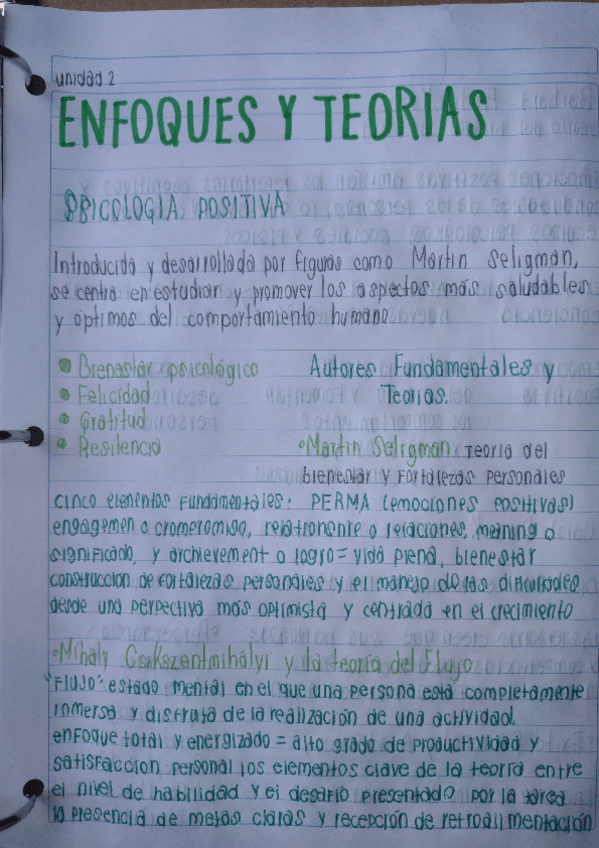 unidad 2
ENFOQUES Y TEORIAS
PSICOLOGIA POSITIVA
Introducida y desarrollada por figuras como Martin Seligman,
se centra en estudiar y promover los aspectos más saludables
y optimos del comportamiento humano
Bienestar psicológico
Felicidad
Gratitud
Resilencia
Autores Fundamentales y
Teorias.
Martin Seligman: Teoria del
bienestar y Fortalezas Personales
cinco elementos Fundamentales: PERMA (emociones positivas)
engagemen o cromeromiso, relationente o relaciones, meaning o
significado, y archievement o logro = vida plena, bienestar
construccion de fortalezas personales y el manejo de las dificultades
desde una perpectiva mas optimista y centrada en el crecimiento
Mihaly Csikszentmihalyi y la teoria del Flujo
"Flujo" estado mental en el que una persona está completamente
inmersa y disfruta de la realización de una actividad.
enfoque total y energizado = alto grado de productividad y
satisfaccion personal los elementos clave de la teoria entre
el nivel de habilidad y el desafio presentado por la tarea
la presencia de metas claras y recepción de retroalimentación